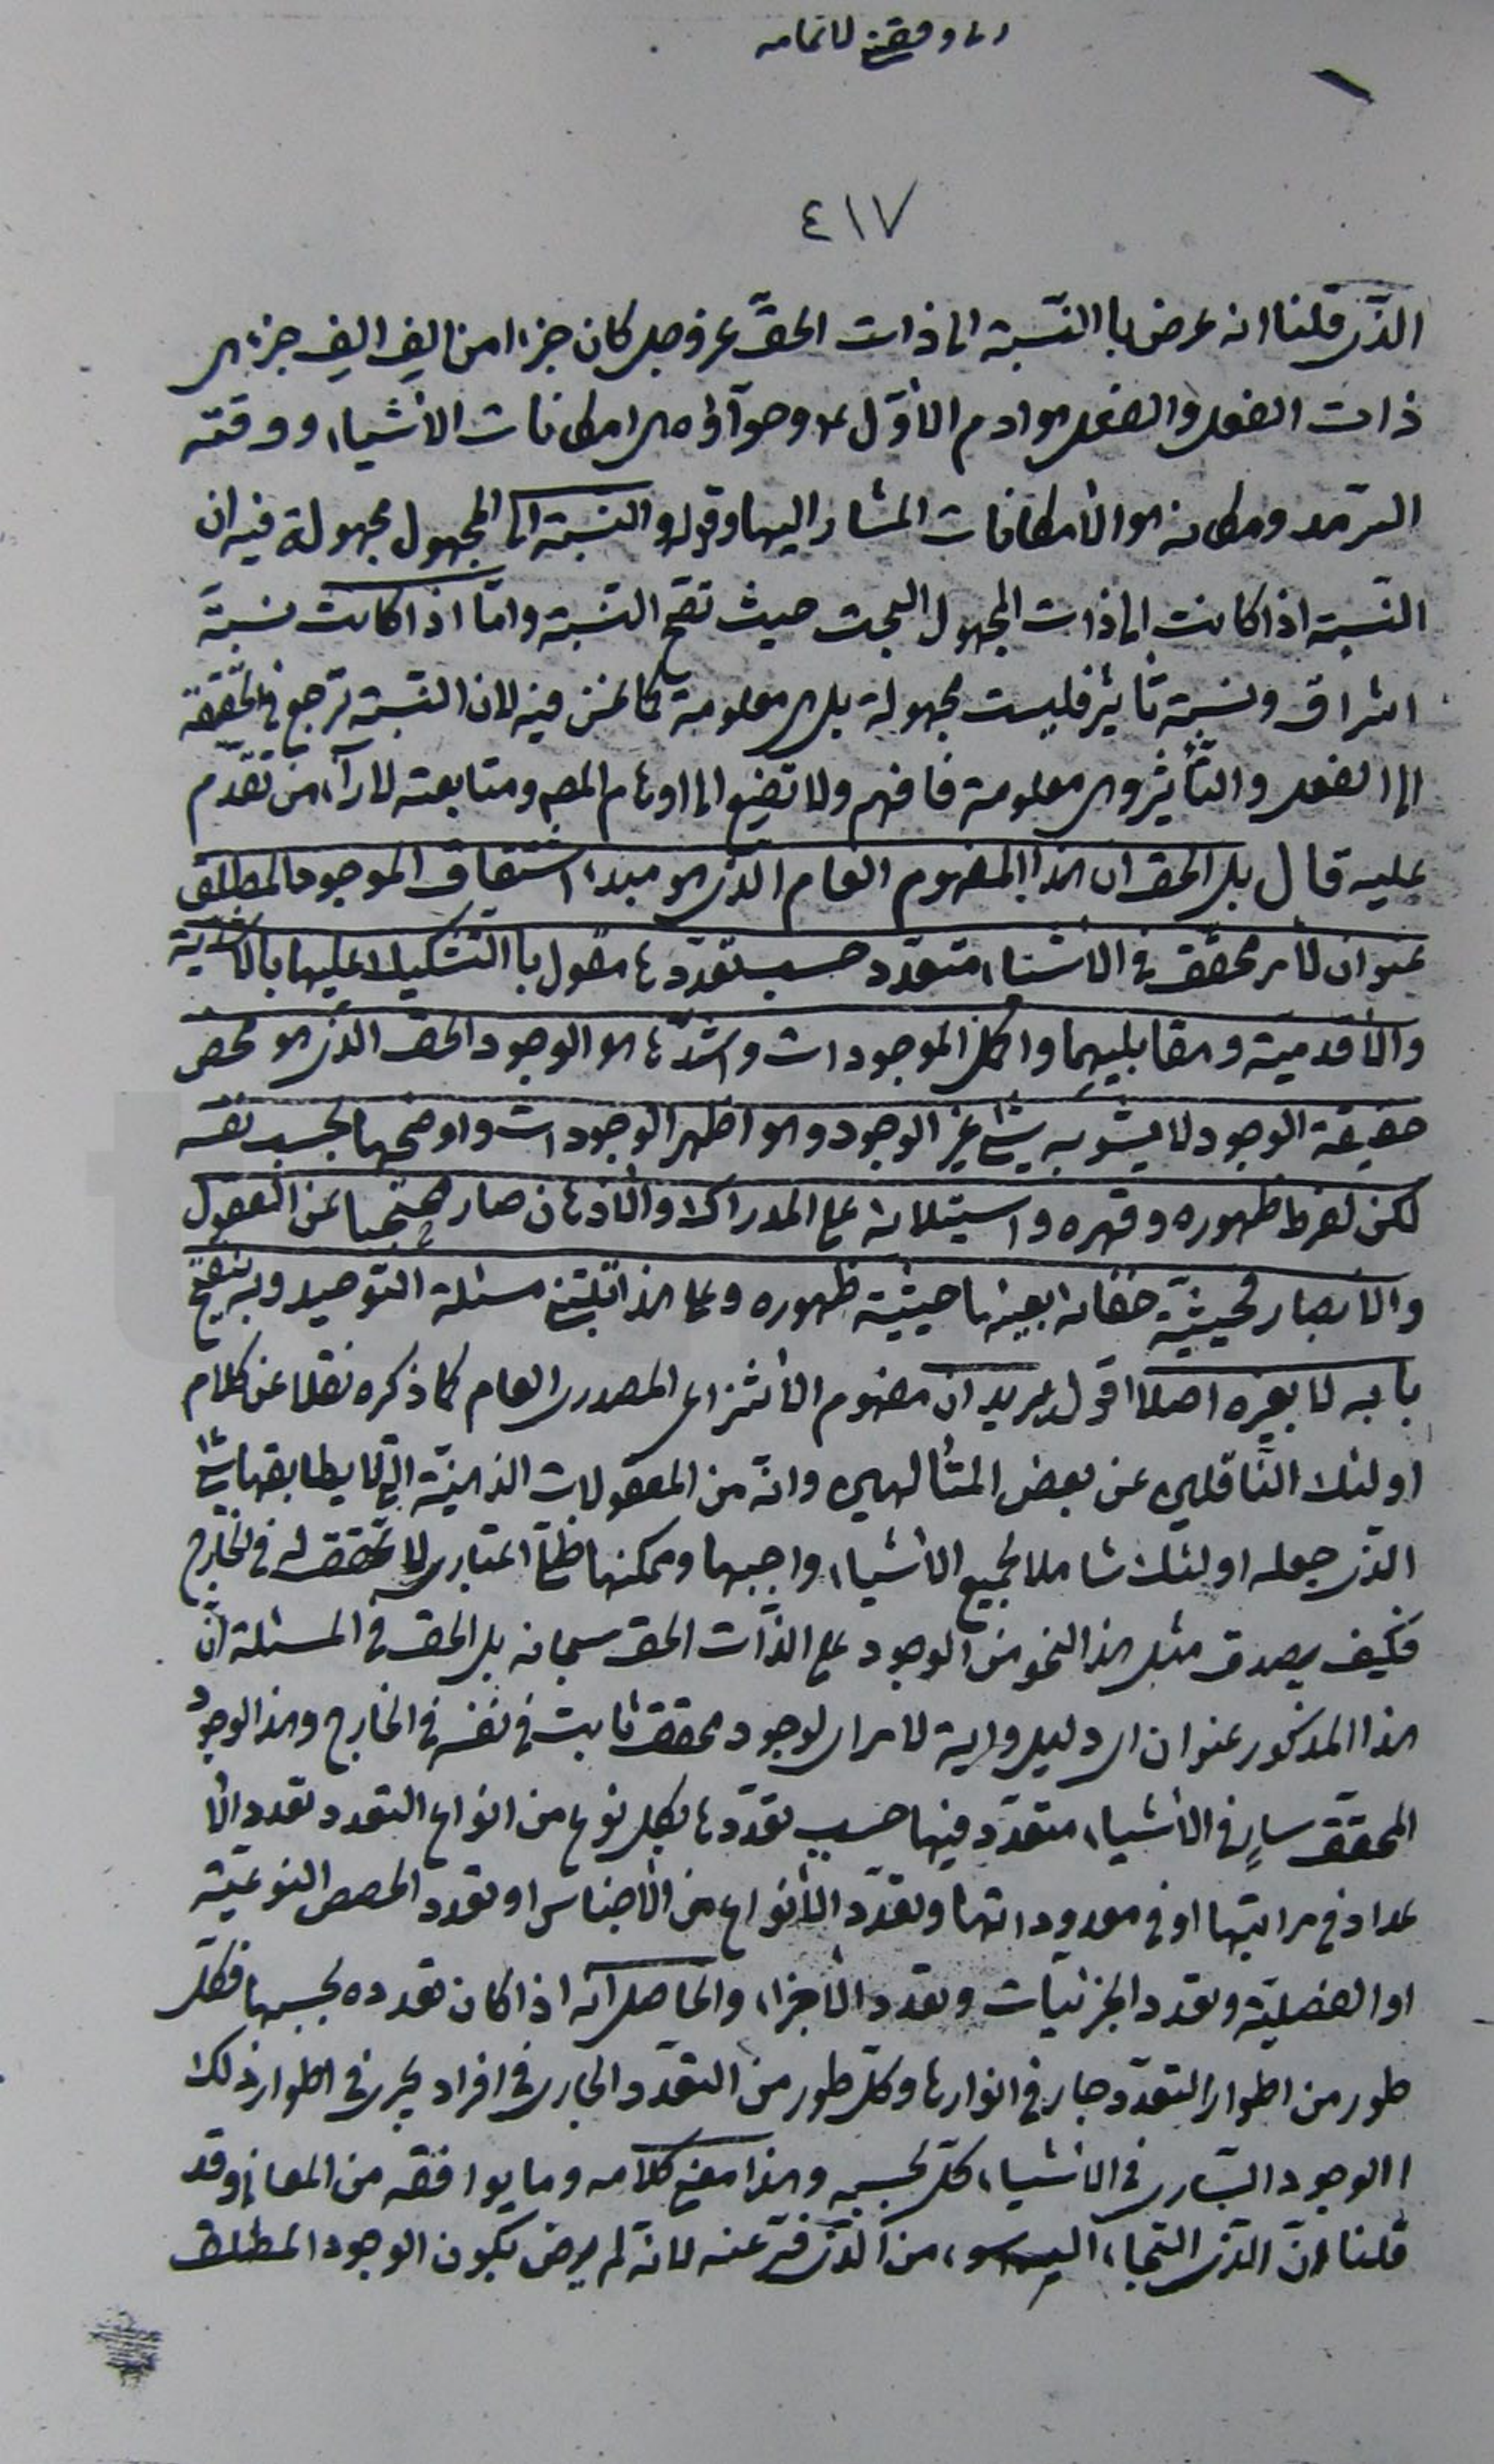 لاتمامه
٤١٧
الذى قلنا انه عرض با النسبة الى ذات الحق عز وجل كان جزءا من الف الف جزء من
ذات الفعل والفعل هو ادم الأول ع وحوآؤه هى امكانات الاشياء ووقته
السرمد ومكانه هو الأمكانات المشار اليها وقوله والنسبة الى المجهول مجهولة فيه ان
النسبة اذا كانت الى ذات المجهول البحت حيث تقع النسبة واما اذا كانت نسبة
اشراق ونسبة تأثير فليست مجهولة بل هى معلومة كما نحن فيه لان النسبة ترجع فى الحقيقة
الى الفعل والتأثير وهى معلومة فافهم ولا تضيع الى اوهام المصر ومتابعته لارآء من تقدم
عليه قال بل الحق ان هذا المفهوم العام الذى هو مبدء اشتقاق الموجود المطلق
عنوان لأمر محقق فى الاشياء متعدد حسب تعددها مقول با التشكيك عليها بالاشدية
والأقدمية ومقابليهما واكمل الموجودات واشدها هو الوجود الحق الذى هو محض
حقيقة الوجود لا يشوبه شئ غير الوجود وهو اظهر الوجودات واوضحها بحسب نفسه
لكن لفرط ظهوره وقهره واستيلائه على المدارك والأذهان صار محتجبا عن العقول
والأبصار فحيثية خفائه بعينها حيثية ظهوره وعلى هذا تبتنى مسئلة التوحيد وبه ينفتح
بابه لا بغيره اصلا اقول يريد ان مفهوم الأنتزاعى المصدرى العام كما ذكره نقلا عن كلام
اولئك الناقلين عن بعض المتألهين وانه من المعقولات الذهنية التى لا يطابقها شئ
الذى جعله اولئك شاملا لجميع الأشياء واجبها وممكنها ظلى اعتبارى لا تحقق له فى الخارج
فكيف يصدق مثل هذا النحو من الوجود على الذات الحق سبحانه بل الحق فى المسئلة ان
هذا المذكور عنوان اى دليل واية لامر اى لوجود محقق ثابت فى نفسه فى الخارج وهذا الوجود
المحقق سارٍ فى الأشياء متعدد فيها حسب تعددها بكل نوع من انواع التعدد تعدد الأ
عداد فى مراتبها او فى معدوداتها وتعدد الأنواع من الأجناس او تعدد الحصص النوعية
او الفصلية وتعدد الجزئيات وتعدد الأجزاء والحاصل انه اذا كان تعدده بحسبها فكل
طور من اطوار التعدد جار فى انوارها وكل طور من التعدد الجارى فى افراد يجرى فى اطوار ذلك
االوجود السارى فى الأشياء كل بحسبه وهذا معنى كلامه وما يوافقه من المعانى وقد
قلنا ان الذى التجاء اليه من الذى فر عنه لانه لم يرض بكون الوجود المطلق